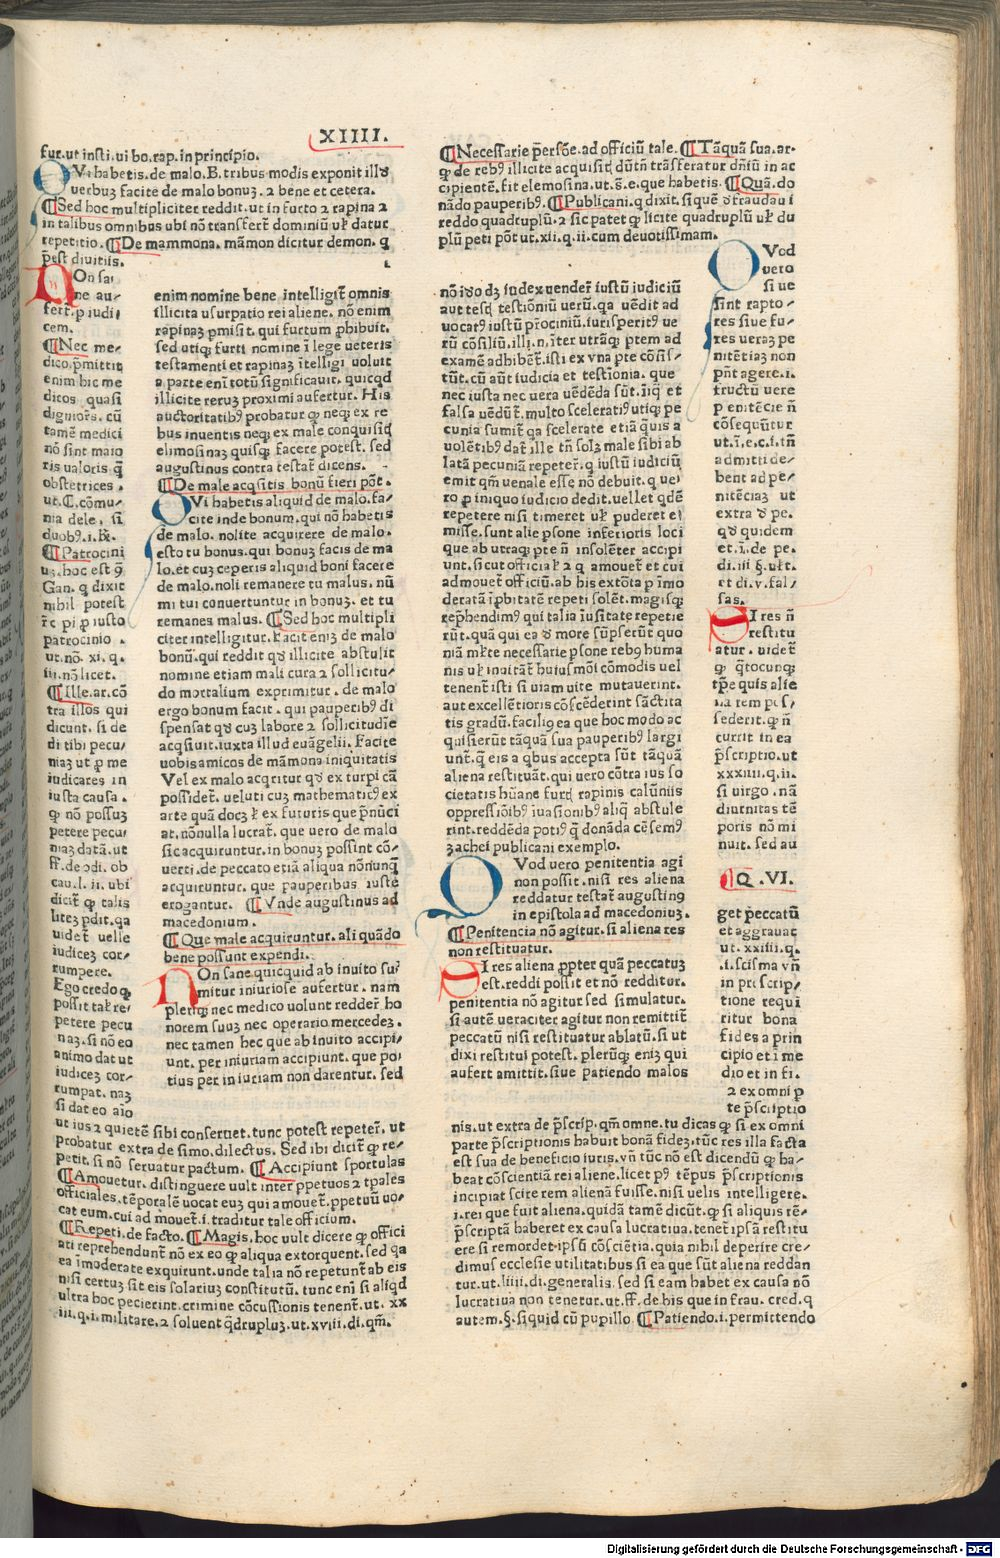 XIIII.
fur. ut insti. ui bo. rap. in principio.
QVi habetis. de malo. B. tribus modis exponit illđ
uerbuȝ facite de malo bonuȝ. ⁊ bene et cetera.
¶ Sed hoc multipliciter reddit. ut in furto ⁊ rapina ⁊
in talibus omnibus ubi nō transfert̄ dominiū uł datur
repetitio. ¶ De mammona. māmon dicitur demon. q
p̄est diuitiis.
NOn sa/
ne au/
fert̄. p iudi
cem.
¶ Nec me/
dico. p̄mittit
enim hic me
dicos quasi
digniors̄. cū
tamē medici
nō sint maio
ris ualoris q̄
obstetrices.
ut. C. cōmu/
nia dele. si
duobꝰ. i. R̄.
¶ Patrocini
uȝ. hoc est ꝯ
Gan. q dixit
nihil potest
r̄c pi ꝓ iusto
patrocinio.
ut. nō. xi. q.
iii. nō licet.
¶ Ille. ar. cō
tra illos qui
dicunt. si de
di tibi pecu/
niaȝ ut ꝓ me
iudicares in
iusta causa.
ꝙ nō possuȝ
petere pecu/
niaȝ datā. ut
ff. de ↄdi. ob
cau. l. ii. ubi
dicit̄ ꝙ talis
liteȝ pdit. qa
uidet̄ uelle
iudiceȝ cor/
rumpere.
Ego credo ꝙ
possit tał re/
petere pecu
naȝ. si nō eo
animo dat ut
iudiceȝ cor/
rumpat. naȝ
si dat eo aīo
ut ius ⁊ quietē sibi conseruet. tunc potest repeter̄. ut
probatur extra de simo. dilectus. Sed ibi dicit̄ ꝙ re/
petit. si nō seruatur pactum. ¶ Accipiunt sportulas
¶ Amouetur. distinguere uult inter ppetuos ⁊ tpales
officiales. tēporalē uocat euȝ qui amouet̄. ppetuū uo/
cat eum. cui ad mouet̄. i. traditur tale officium.
¶ Repeti. de facto. ¶ Magis. hoc uult dicere ꝙ offici
ati reprehendunt̄ nō ex eo ꝙ aliqua extorquent. sed qa
ea īmoderate exquirunt. unde talia nō repetunt̄ ab eis
nisi certuȝ sit eis solariuȝ constitutū. tunc eni si aliqd
ultra hoc pecierint. crimine cōcussionis tenent̄. ut. xx
iii. q. i. militare. ⁊ soluent q̄drupluȝ. ut. xviii. di. qm̄.
enim nomine bene intelligit̄ omnis
illicita usurpatio rei aliene. nō enim
rapinaȝ pmisit. qui furtum phibuit.
sed utiqȝ furti nomine ī lege ueteris
testamenti et rapinaȝ ītelligi uoluit
a parte eni totū significauit. quicqd
illicite reruȝ proximi aufertur. His
auctoritatibꝰ probatur ꝙ neqȝ ex re
bus inuentis neqȝ ex male conquisitꝭ
elimosinaȝ quisqȝ facere potest. sed
augustinus contra testat̄ dicens.
¶ De male acqsitis bonū fieri pōt.
QVi habetis aliquid de malo. fa/
cite inde bonum. qui nō habetis
de malo. nolite acquirere de malo.
esto tu bonus. qui bonuȝ facis de ma
lo. et cuȝ ceperis aliquid boni facere
de malo. noli remanere tu malus. nū
mi tui conuertuntur in bonuȝ. et tu
remanes malus. ¶ Sed hoc multipli
citer intelligitur. Facit enī de malo
bonū. qui reddit qđ illicite abstulit
nomine etiam mali cura ⁊ sollicitu/
do mortalium exprimitur. de malo
ergo bonum facit. qui pauperibꝰ di
spensat qđ cuȝ labore ⁊ sollicitudīe
acqsiuit. iuxta illud euāgelii. Facite
uobis amicos de māmona iniquitatis
Vel ex malo acqritur qđ ex turpi cā
possidet̄. ueluti cuȝ mathematicꝰ ex
arte quā docȝ ł ex futuris que p̄nūci
at. nōnulla lucrat̄. que uero de malo
sic acquiruntur. in bonuȝ possīnt cō/
uerti. de peccato etiā aliqua nōnūnq̄
acquiruntur. que pauperibus iuste
erogantur. ¶ Vnde augustinus ad
macedonium.
¶ Que male acquiruntur. ali quādo
bene possunt expendi.
NOn sane quicquid ab inuito su/
mitur iniuriose aufertur. nam
pleriqȝ nec medico uolunt redder̄ ho
norem suuȝ nec operario mercedeȝ.
nec tamen hec que ab inuito accipi/
unt. per iniuriam accipiunt. que poi
tius per in iuriam non darentur. sed
¶ Necessarie p̄sōe. ad officiū tale. ¶ Tāquā sua. ar.
ꝙ de rebꝰ illicite acquisitꝭ dūtn̄ trāsferatur dn̄iū in ac
cipientē. fit elemosina. ut. s̄. e. que habetis. ¶ Quā. do
nādo pauperibꝰ. ¶ Publicani. q dixit. si quē đ fraudau i
reddo quadruplū. ⁊ sic patet ꝙ licite quadruplū uł du
plū peti pōt ut. xii. q. ii. cum deuotissimam.
nō iđo dȝ iudex uender̄ iustū iudiciū
aut testꝭ testīoniū uerū. qa uēdit ad
uocatꝰ iustū pr̄ociniū. iurisperitꝰ ue
rū cōsiliū. illi. n. iter utrāqȝ ptem ad
examē adhibēt̄. isti ex vna pte cōsis/
tūt. cū aūt iudicia et testīonia. que
nec iusta nec uera uēdēda sūt. īiqͣ et
falsa uēdūt̄. multo sceleratiꝰ utiqȝ pe
cunia sumit̄ qa scelerate etiā quis a
uolētibꝰ dat̄. ille tn̄ solȝ male sibi ab
latā pecuniā repeter̄. q iustū iudiciū
emit qm̄ uenale esse nō debuit. q ue/
ro ꝓ iniquo iudicio dedit. uellet qdē
repetere nisi timeret uł puderet ei
misse. sunt alie psone inferioris loci
que ab utraqȝ pte n̄ insolēter accipi
unt. sicut official ⁊ q amouet̄ et cui
admouet̄ officiū. ab his extōta p īmo
deratā īpbitatē repeti solēt. magisqȝ
rep̄hendimꝰ qui talia īusitate repetie
rūt. quā qui ea đ more sūpserūt quo
niā młte necessarie psone rebꝰ huma
nis uł inuitāt̄ huiusmōi cōmodis uel
tenent̄ isti si uiam uite mutauerint.
aut excellētioris cōscēderint sāctita
tis gradū. faciliꝰ ea que hoc modo ac
quisierūt tāquā sua pauperibꝰ largi
unt̄. q̄ eis a qbus accepta sūt tāquā
aliena restituāt. qui uero cōtra ius so
cietatis hūane furtꝭ rapinis calūniis
oppressiōibꝰ iuasionibꝰ aliqͣ abstule
rint. reddēda potiꝰ q̄ donāda cēsemꝰ
ȝachei publicani exemplo.
QVod uero penitentia agi
non possit. nisi res aliena
reddatur testat̄ augustinꝰ
in epistola ad macedoniuȝ.
¶ Penitencia nō agitur. si aliena res
non restituatur.
SI res aliena ꝓpter quā peccatuȝ
est. reddi possit et nō redditur.
penitentia nō agitur sed simulatur.
si autē ueraciter agitur non remittit̄
peccatū nisi restituatur ablatū. si ut
dixi restitui potest. plerūqȝ eniȝ qui
aufert amittit. siue patiendo malos
QVod
uero
si ue
sint rapto/
res siue fu/
res ueraȝ pe
nitētiaȝ non
pn̄t agere. i.
fructū uere
p enitēcie n̄
cōsequūtur
ut. ī. e. c. i. tn̄
admitti de/
bent ad pe/
nitēciaȝ ut
extra đ pe.
qđ quidem
et. i. de pe.
di. iii §. ułt.
et di. v. fal/
sas.
SI res n̄
restitu
atur. uidet̄
ꝙ q̄tocunqȝ
tpē quis alie
na rem pos/
sederit. ꝙ n̄
currit in ea
p̄scriptio. ut
xxxiiii. q. ii.
si uirgo. nā
diutnitas tē
poris nō mi
nuit. sed au
¶ Q. VI.
get peccatū
et aggrauat
ut. xxiiii. q.
.i. scisma vn̄
in pre scrip/
tione requi
ritur bona
fides a prin
cipio et ī me
dio et in fi.
⁊ ex omni ꝑ
te p̄scriptio
nis. ut extra de p̄scrip. qm̄ omne. tu dicas ꝙ si ex omni
parte p̄scriptionis habuit bonā fideȝ. tūc res illa facta
est sua de beneficio iuris. vn̄ tūc nō est dicendū ꝙ ha/
beat cōscientiā rei aliene. licet pꝰ tēpus p̄scriptionis
incipiat scire rem alienā fuisse. nisi uelis intelligere.
.i. rei que fuit aliena. quidā tamē dicūt. ꝙ si aliquis rē
p̄scriptā haberet ex causa lucratiua. tenet̄ ipsā restitu
ere si remordet ipsū cōsciētia. quia nihil deperire cre/
dimus ecclesie utilitatibus si ea que sūt aliena reddan
tur. ut. liiii. di. generalis. sed si eam habet ex causa nō
lucratiua non tenetur. ut. ff. de his que in frau. cred. q
autem. §. si quid cū pupillo. ¶ Patiendo. i. permittendo
Digitalisierung gefördert durch die Deutsche Forschungsgemeinschaft - DFG